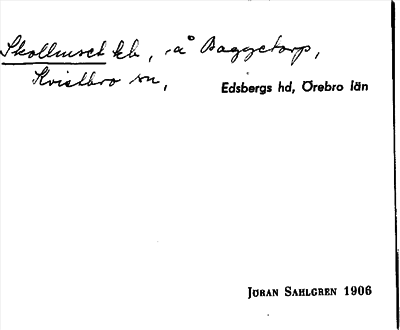 Skollmset kb, å Baggetorp,
Kvistbro sn,
Edsbergs hd, Örebro län
JÖRAN SAHLGREN 1906